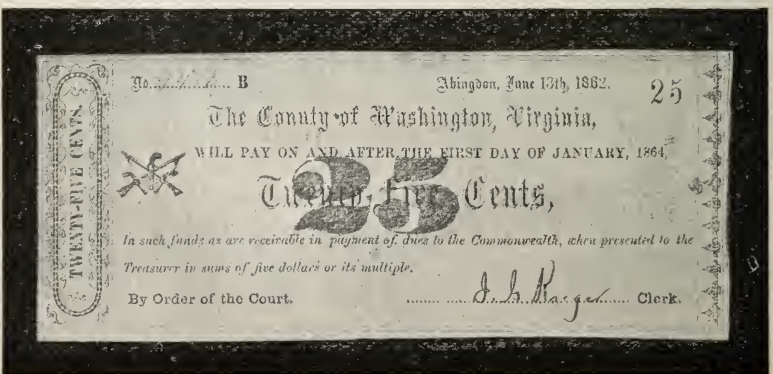 TWENTY-FIVE CENTS.
No. B Abingdon, June 13th, 1862. 25
The County of Washington, Virginia,
WILL PAY ON AND AFTER THE FIRST DAY OF JANUARY, 1864,
25
Twenty-Five Cents,
In such funds as are receivable in payment of dues to the Commonwealth, when presented to the
Treasurer in sums of five dollars or its multiple.
By Order of the Court. J. G. Kreger Clerk.